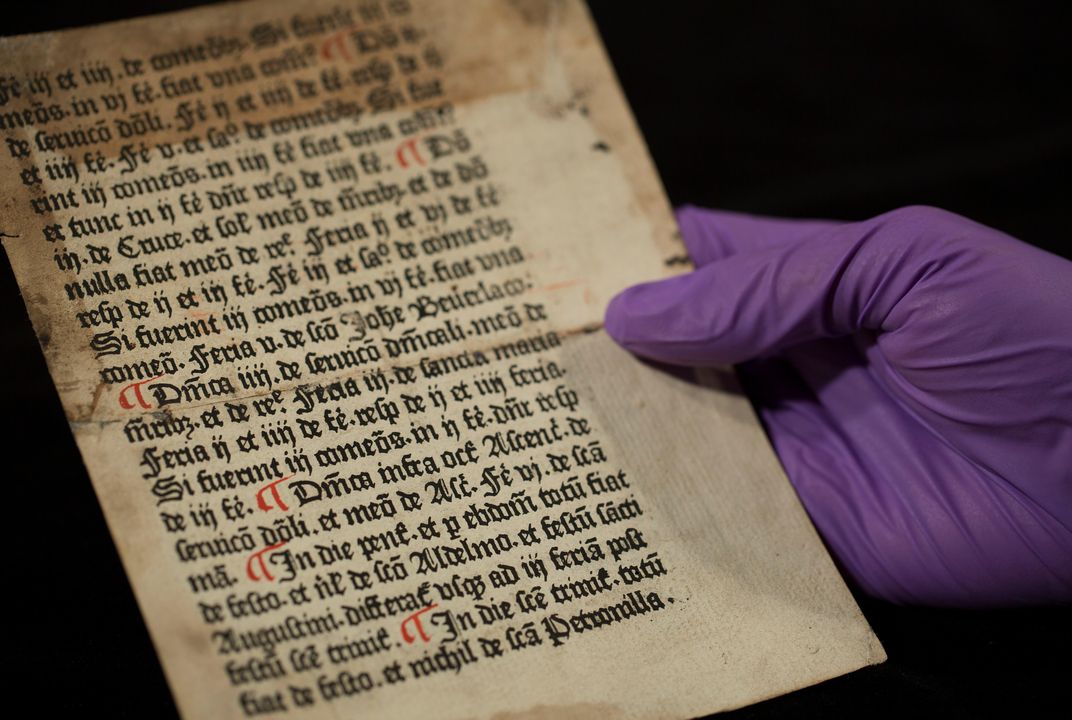 Si fuerit iii co
fé iij et iiij. de comeōbȝ. Si fuerit ¶ Dō
meōs. in vj fé. fiat vna
de seruicō dōli. Fé ij et iiij de fé. resp de ij
et iiij fé. Fé v. et saº. de comeōbȝ. Si fue
rint iij comeōs. in iiij fé fiat vna
et tunc in ij fé dn̄r resp de iij fé. ¶ Dō
iij. de Cruce. et sol meō de m̄ribȝ. et de dō
nulla fiat meō de reᵉ. Feria ij et vj de fé
resp de ij et iij fé. Fé iij et saº. de comeōbȝ
Si fuerint iij comeōs. in vj fé. fiat vna
comeō. Feria v. de scō Johe Beuerlaco.
¶ Dm̄ca iiij. de seruicō dm̄cali. meō de
m̄ribȝ. et de reᵉ. Feria iij. de sancta maria
Feria ij et iiij de fé. resp de ij et iiij feria.
Si fuerint iij comeōs. in ij fé. dn̄r resp
de iij fé. ¶ Dm̄ca infra oct̄. Ascenc̄. de
seruicō dōli. et meō de Asc̄. Fé vj. de scā
mā. ¶ In die pent̄. et p ebdom̄ totū fiat
de festo. et nl̄ de scō Aldelmo. et festū sācti
Augustini. differat̄ vsqȝ ad iij feriā post
festū scē trinit̄. ¶ In die scē trinit̄. totū
fiat de festo. et nichil de scā Petronilla.